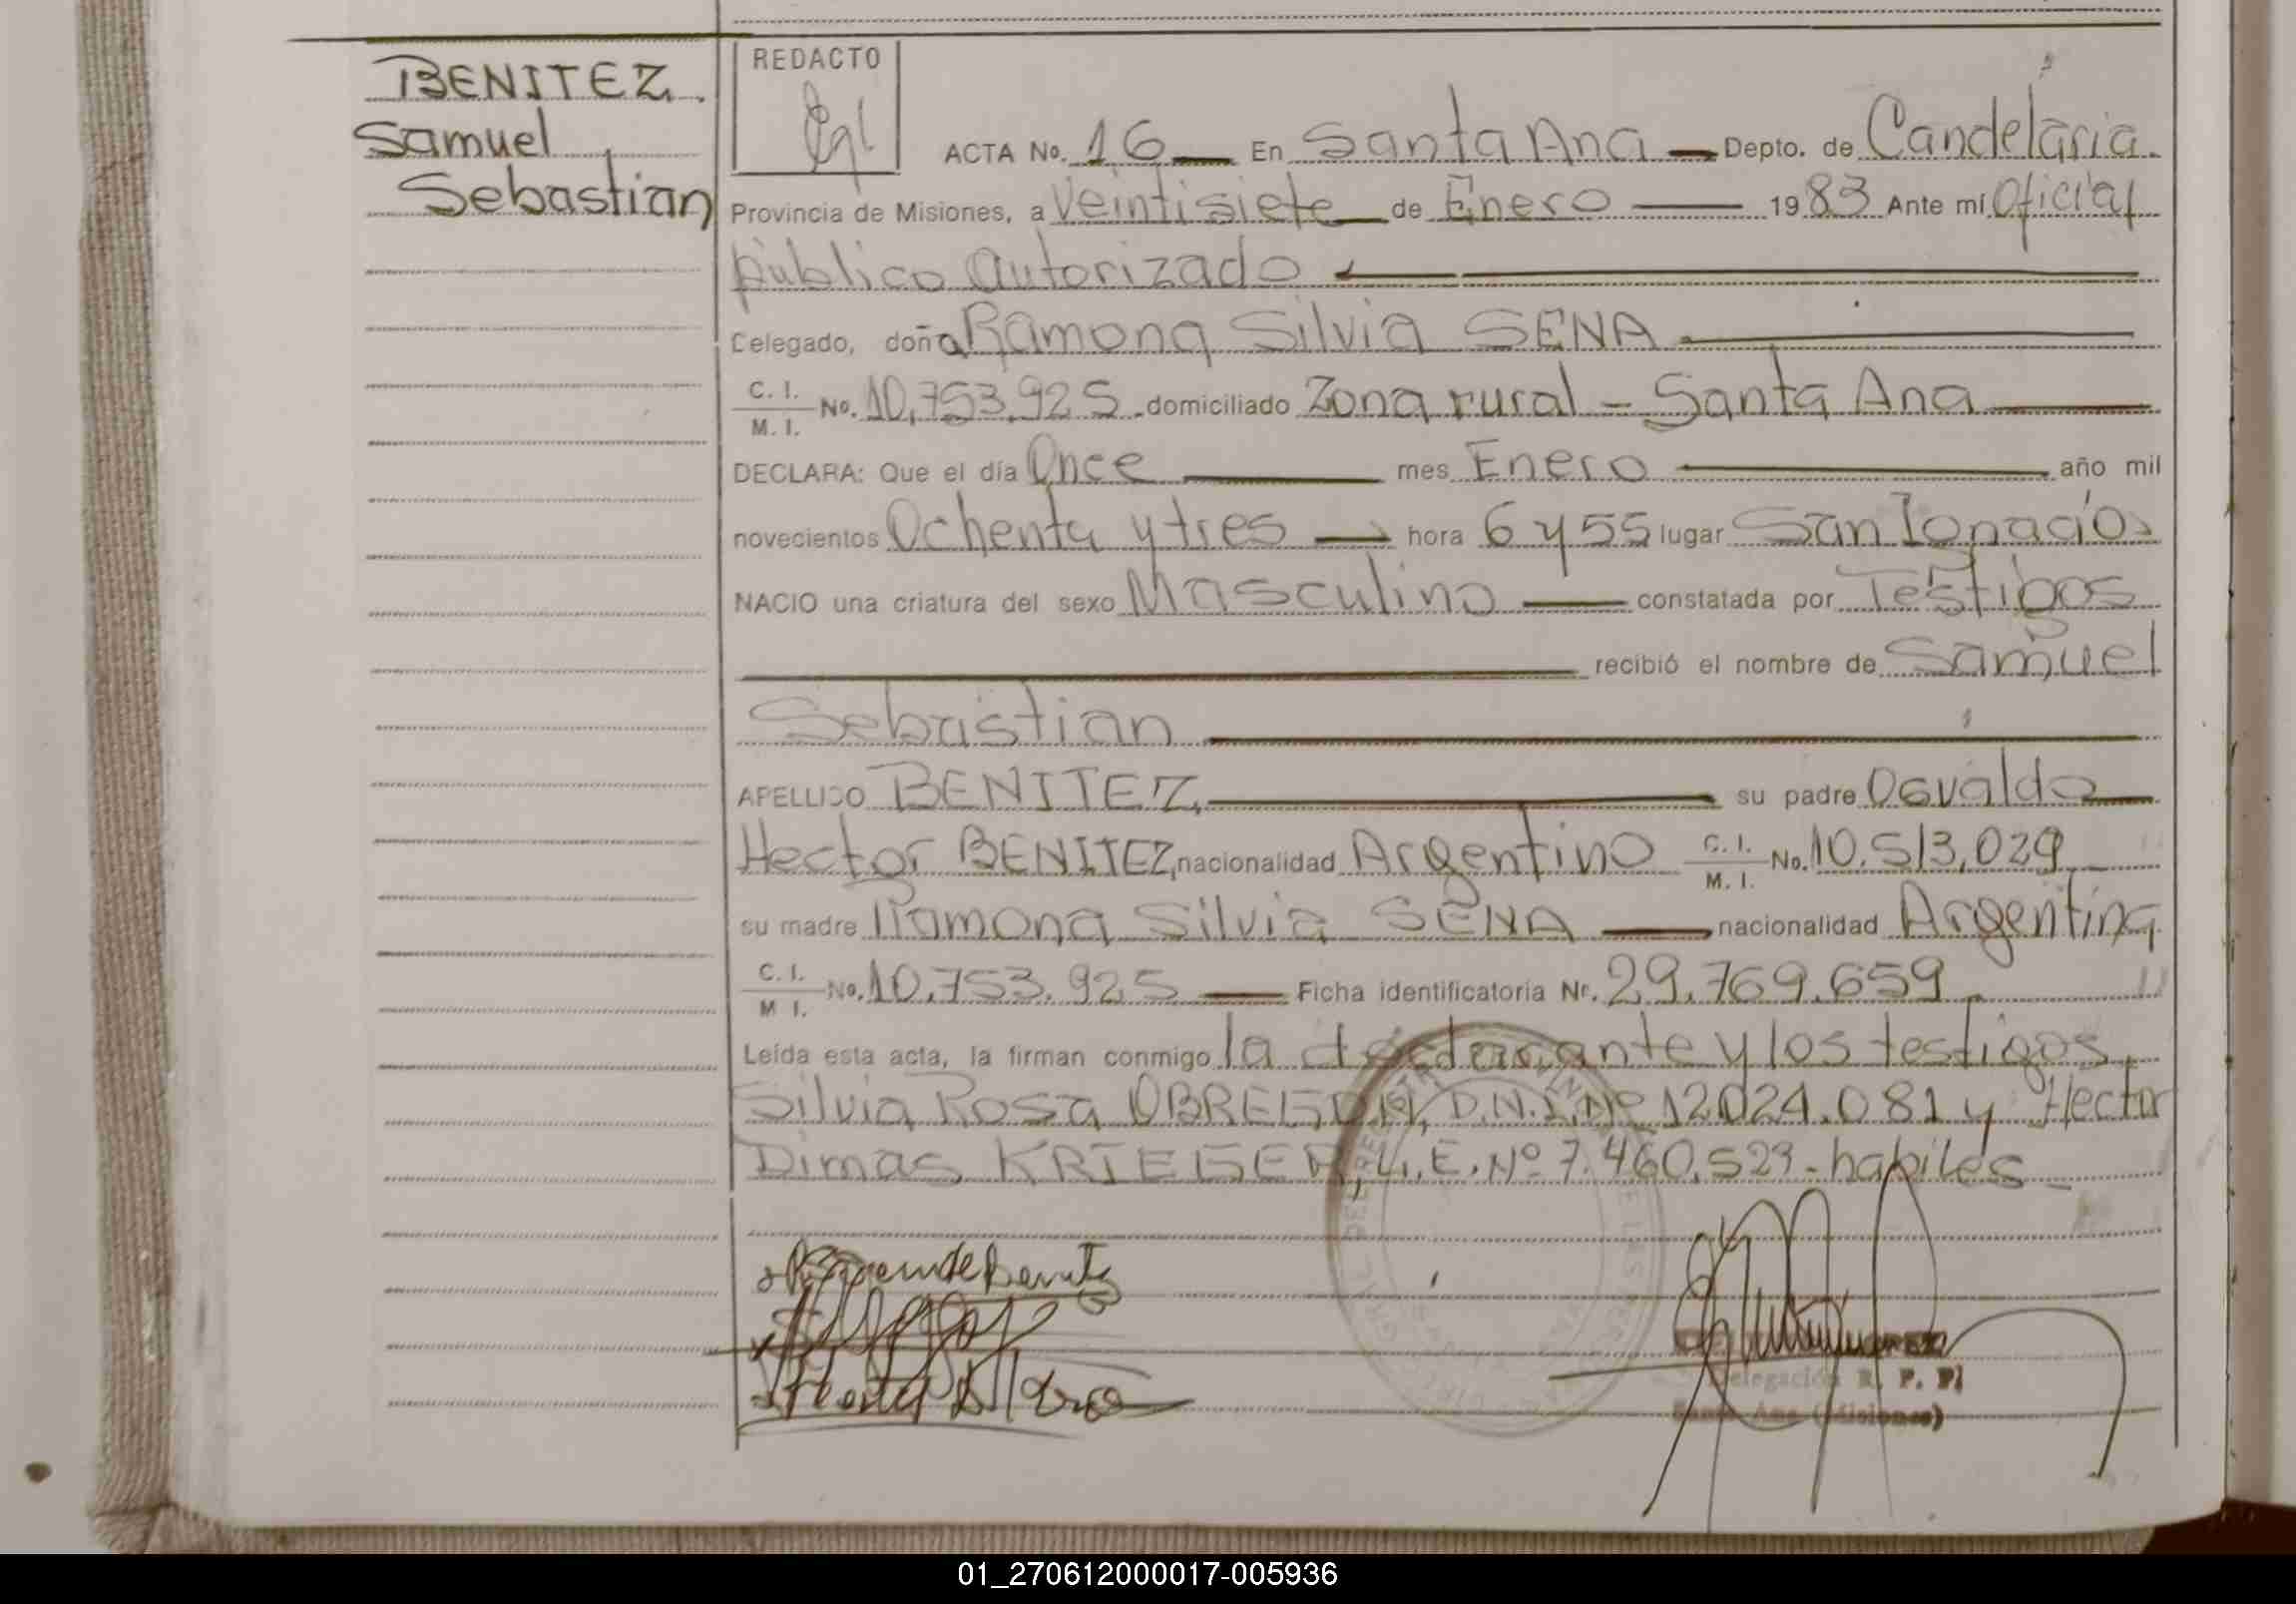 BENITEZ
Samuel
Sebastian
REDACTO
ACTA No. 16 En Santa Ana Depto. de Candelaria
Provincia de Misiones, a Veintisiete de Enero 1983 Ante mí Oficial
público autorizado
Delegado, doña Ramona Silvia SENA
C. I.
M. I. No. 10.753.925 domiciliado Zona rural - Santa Ana
DECLARA: Que el día Once mes Enero año mil
novecientos Ochenta y tres hora 6 y 55 lugar San Ignacio
NACIO una criatura del sexo Masculino constatada por Testigos
recibió el nombre de Samuel
Sebastian
APELLIDO BENITEZ, su padre Osvaldo
Hector BENITEZ, nacionalidad Argentino C. I. M. I. No. 10.513.029
su madre Ramona Silvia SENA nacionalidad Argentina
C. I.
M. I. No. 10.753.925 Ficha identificatoria Nr. 29.769.659
Leída esta acta, la firman conmigo la declarante y los testigos
Silvia Rosa OBREGON, D.N.I. Nº 12024.081 y Hector
Dimas KRIEGER, L.E. Nº 7.460.523 - habiles
Delegación R. P. P.
Santa Ana (Misiones)
01_270612000017-005936